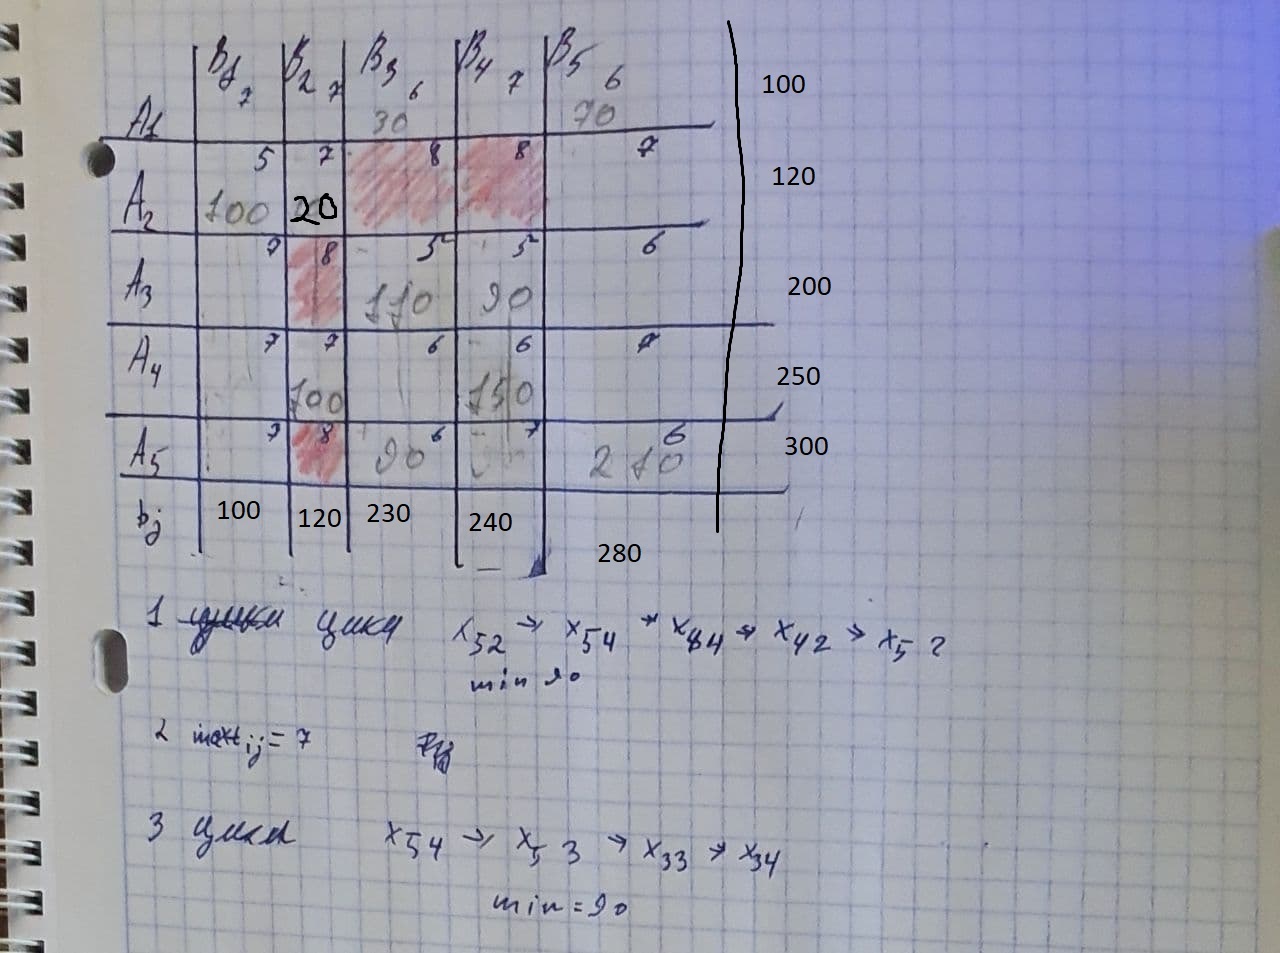 B1 B2 B3 B4 B5
A1 7 7 6 30 7 6 70 100
A2 5 100 7 20 8 8 7 120
A3 7 8 5 110 5 90 6 200
A4 7 7 100 6 6 150 7 250
A5 7 8 6 90 7 6 210 300
bj 100 120 230 240 280
1 цикл x52 → x54 → x44 → x42 → x52
min 90
2 max tij = 7
3 цикл x54 → x53 → x33 → x34
min = 90